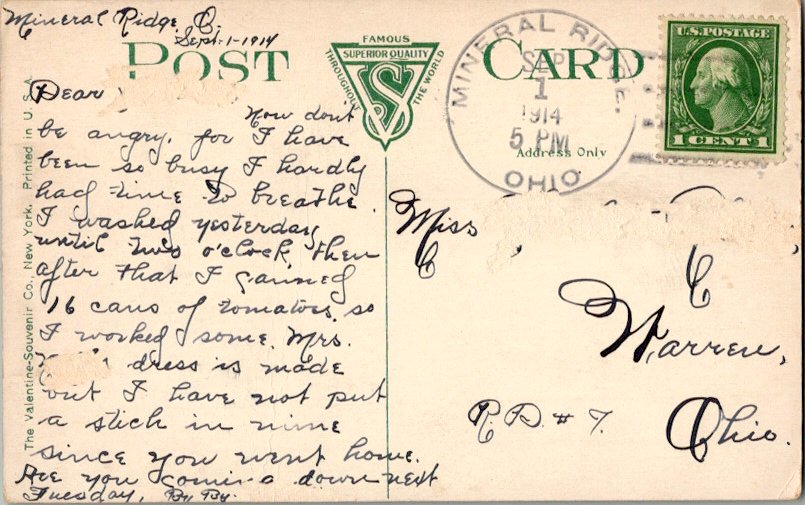 Mineral Ridge, O.
Sept-1-1914
POST CARD
FAMOUS
SUPERIOR QUALITY
THROUGHOUT THE WORLD
VS
MINERAL RIDGE.
SEP
1
1914
5 PM
OHIO
U.S. POSTAGE
1 CENT 1
Address Only
Dear
Now don't
be angry, for I have
been so busy I hardly
had time to breathe.
I washed yesterday
until two o'clock then
after that I canned
16 cans of tomatoes, so
I worked some. Mrs.
dress is made
out I have not put
a stick in mine
since you went home.
Are you coming down next
Tuesday, By By.
Miss
C
Warren,
R.D. # 7.
Ohio.
The Valentine-Souvenir Co., New York. Printed in U.S.A.